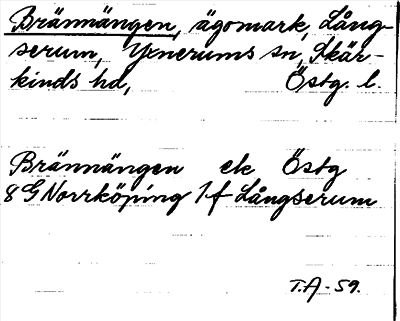 Brännängen, ägomark, Lång-
serum, Yxnerums sn, Skär-
kinds hd, Östg. l.
Brännängen ek Östg
8 G Norrköping 1 f Långserum
T.A-59.